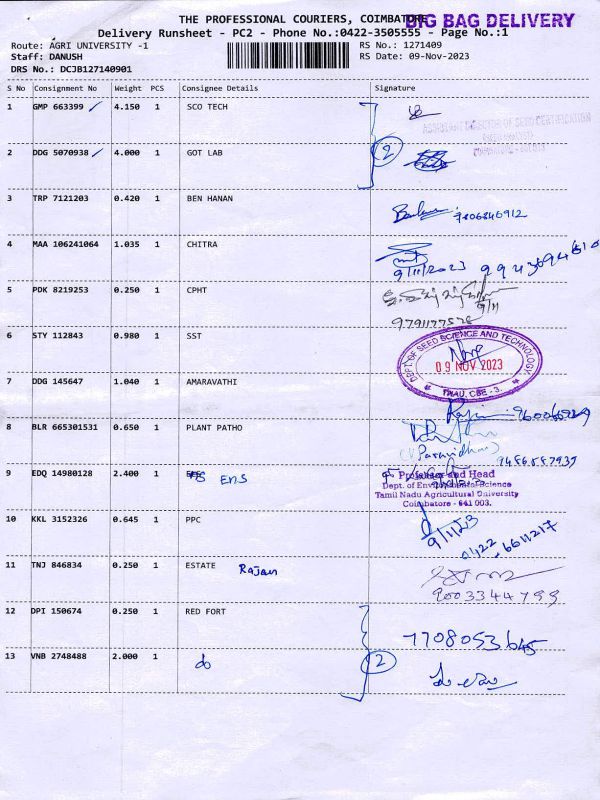 THE PROFESSIONAL COURIERS, COIMBATORE
BIG BAG DELIVERY
Delivery Runsheet - PC2 - Phone No.:0422-3505555 - Page No.:1
Route: AGRI UNIVERSITY -1 RS No.: 1271409
Staff: DANUSH RS Date: 09-Nov-2023
DRS No.: DCJB127140901
S No Consignment No Weight PCS Consignee Details Signature
1 GMP 663399 ✓ 4.150 1 SCO TECH
ASSISTANT DIRECTOR OF SEED CERTIFICATION
2 DDG 5070938 ✓ 4.000 1 GOT LAB
2
3 TRP 7121203 0.420 1 BEN HANAN
7806846912
4 MAA 106241064 1.035 1 CHITRA
9/11/2023
5 PDK 8219253 0.250 1 CPHT
9/11
6 STY 112843 0.980 1 SST
DEPT. OF SEED SCIENCE AND TECHNOLOGY
09 NOV 2023
TNAU, CBE - 3.
7 DDG 145647 1.040 1 AMARAVATHI
8 BLR 665301531 0.650 1 PLANT PATHO
9 EDQ 14980128 2.400 1 ENS
Professor and Head
Dept. of Environmental Science
Tamil Nadu Agricultural University
Coimbatore - 641 003.
10 KKL 3152326 0.645 1 PPC
9/11/23
0422-6611217
11 TNJ 846834 0.250 1 ESTATE Rajan
9003344799
12 DPI 150674 0.250 1 RED FORT
7708053645
13 VNB 2748488 2.000 1 do
2